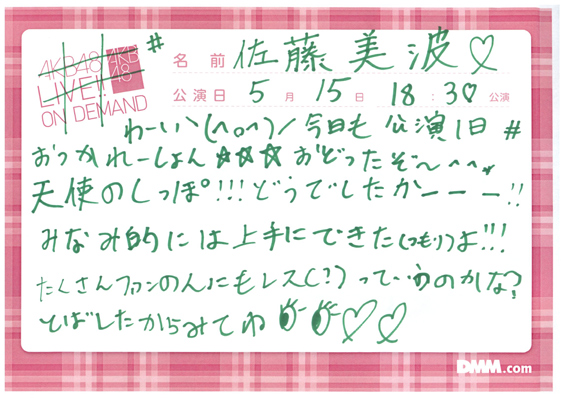 AKB48
LIVE!!
ON DEMAND
AKB
48
# 名前 佐藤美波♡
公演日 5月15日 18:30公演
わーい(^o^)/今日も公演1日#
おつかれーしょん☆☆☆おどったぞ〜^^
天使のしっぽ!!!どうでしたかーーー!!
みなみ的には上手にできた(つもり)よ!!!
たくさんファンの人にもレス(?)っていうのかな?
とばしたからみてね👀♡♡
DMM.com